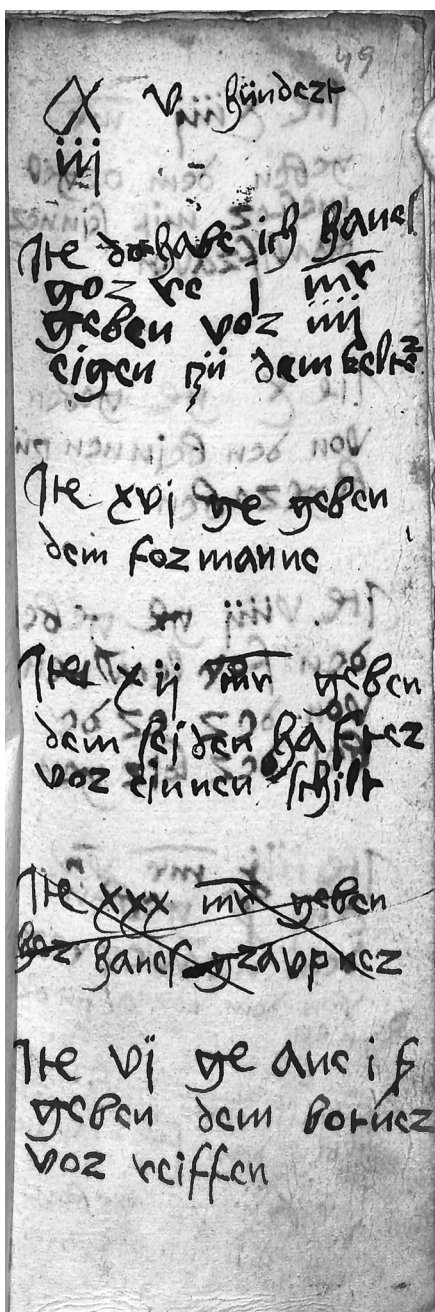 49
X v hundert
iiij
Ite do habe ich hanes
vor re j mr
geben vor iiij
eigen zu dem kelre
Ite xvj ge geben
dem formanne
Ite xij mr geben
dem seiden hafter
vor einnen schilt
Ite xxx mr geben
hanes
Ite vj ge ane i
geben dem borner
vor reiffen